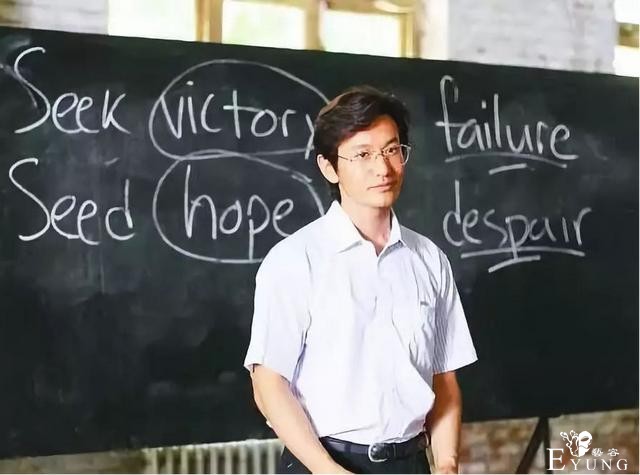 Seek victory failure
Seed hope despair
藝容
EYUNG